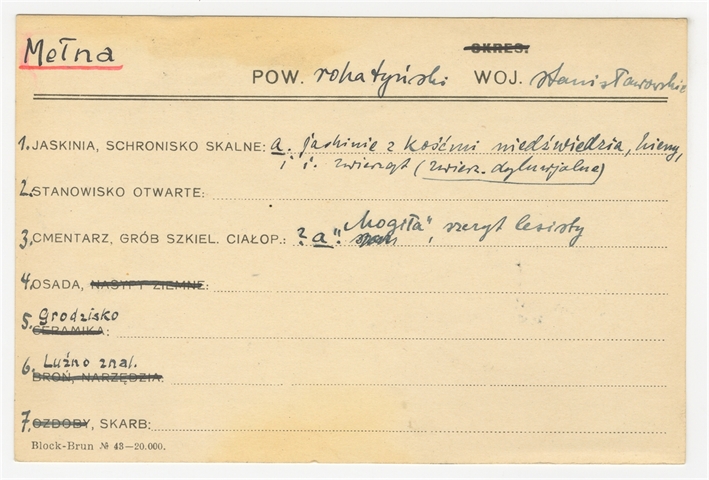 Mełna
OKRES:
POW. rohatyński WOJ. stanisławowskie
1. JASKINIA, SCHRONISKO SKALNE: a. jaskinie z kośćmi niedźwiedzia, hieny,
i i. zwierząt (zwierz. dyluwjalne)
2. STANOWISKO OTWARTE:
3. CMENTARZ, GRÓB SZKIEL. CIAŁOP.: ? a. "Mogiła", szczyt lesisty
4. OSADA, NASYPY ZIEMNE:
5. Grodzisko
CERAMIKA:
6. Luźno znal.
BROŃ, NARZĘDZIA:
7. OZDOBY, SKARB:
Block-Brun № 43—20.000.